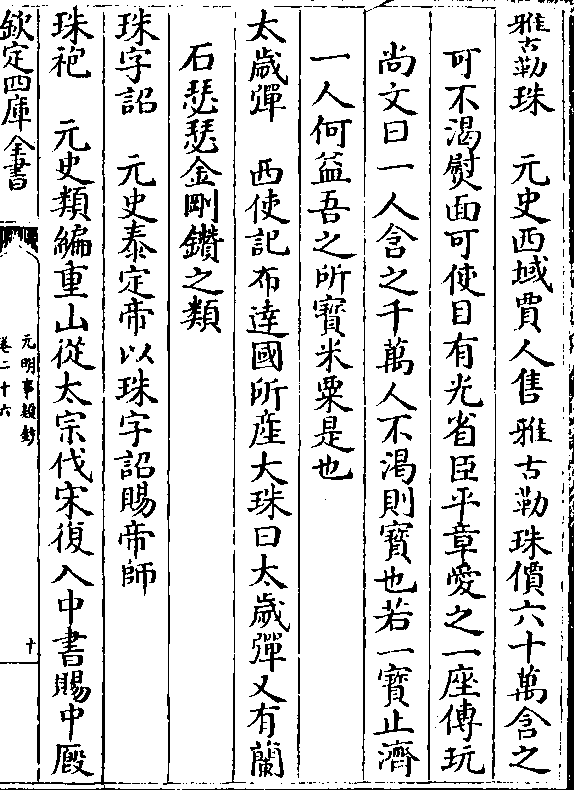 雅古勒珠　元史西域賈人售雅古勒珠價六十萬含之
可不渴熨面可使目有光省臣平章愛之一座傳玩
尚文曰一人含之千萬人不渴則寶也若一寶止濟
一人何益吾之所寶米粟是也
太歲彈　西使記布達國所産大珠曰太歲彈又有蘭
石瑟瑟金剛鑽之類
珠字詔　元史泰定帝以珠字詔賜帝師
珠袍　元史類編重山從太宗伐宋復入中書賜中廐
欽定四庫全書
元明事類鈔
卷二十六
十